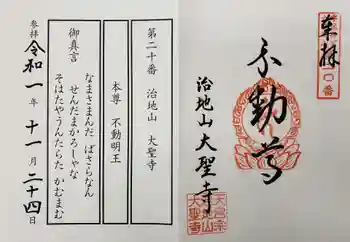 第二十番 治地山 大聖寺
本尊 不動明王
御真言
なまさまんだ ばさらなん
せんだまかろしゃな
そはたやうんたらた かむまむ
参拝 令和一年十一月二十四日
奉拝
〇番
不動尊
治地山大聖寺